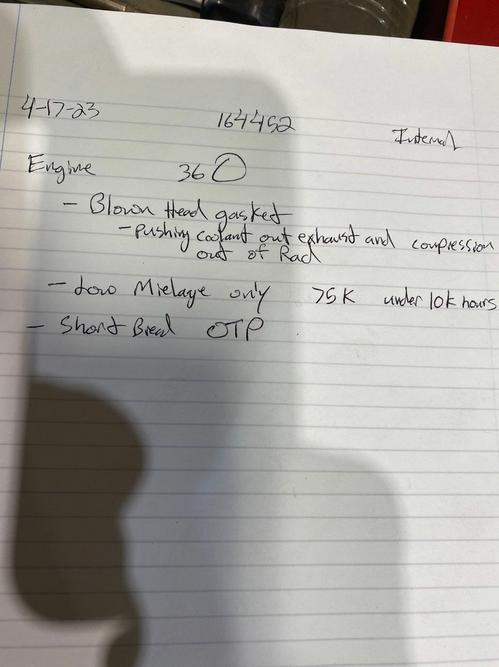 4-17-23 164452 Internal
Engine 360
- Blown Head gasket
- pushing coolant out exhaust and compression
out of Rad
- Low Mielage only 75K under 10k hours
- Short OTP